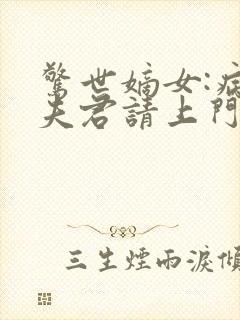 驚世嫡女:病
夫君請上門
三生煙雨淚傾